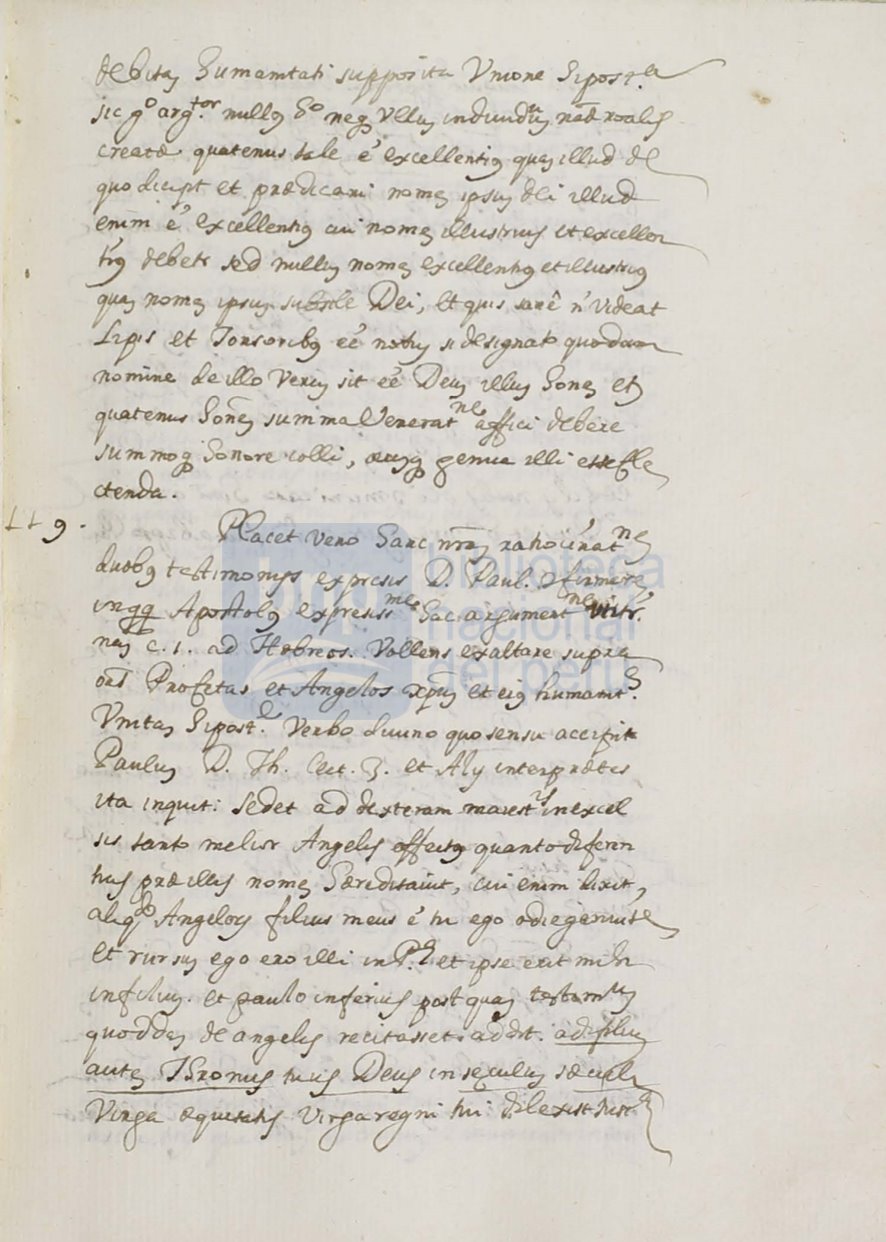 debitam humanitati supposita Unione hipost.ca
sic g° arg.tor nullus h° neq; Ullum indiuiduũ nãæ realis
creatæ quatenus tale é excellentius quam illud de
quo dicipt et prædicari nomen ipsum dei illud
enim é excellentius cui nomen illustrius et excellen
tius debetr sed nullum nomen excellentius et illustrius
quam nomen ipsum Dei, et quis sanê n' Videat
Lipis et Tonsoribus eé notum si designato quodam
nomine de illo Verum sit eé Deum illum hominem etiam
quatenus hominem summa Venerat.ne affici debere
summoq; honore colli, genua illi esse fle
ctenda.
119. Placet vero hanc nr̃am ratiocinat.nem
duobus testimonijs expresis D. Paul. confirmare
inquit Apostolus expressis.me hac argument.ne
c. 1. ad Hæbreos. Vollens exaltare supra
oẽs Profetas et Angelos xp̃um et eius humanit.
Unitam hipost.e Verbo diuino quo sensu accipit
Paulum D. Th. lect. 3. et Alij interprætes
ita inquit: sedet ad dexteram maiest.is in excel
sis tanto melior Angelis effectus quanto diferen
tius præ illis nomen hæreditauit, cui enim dixit,
aliqdo Angelorum filius meus é tu ego odie genui te
et rursum ego ero illi in P.e et ipse erit mihi
in filium. et paulo inferius post quam testimoniũ
quoddam de angelis recitasset. addit. ad filium
autem Thronus tuus Deus in seculum sæculi
Virga æquitatis Virga regni tui dilexisti iust.